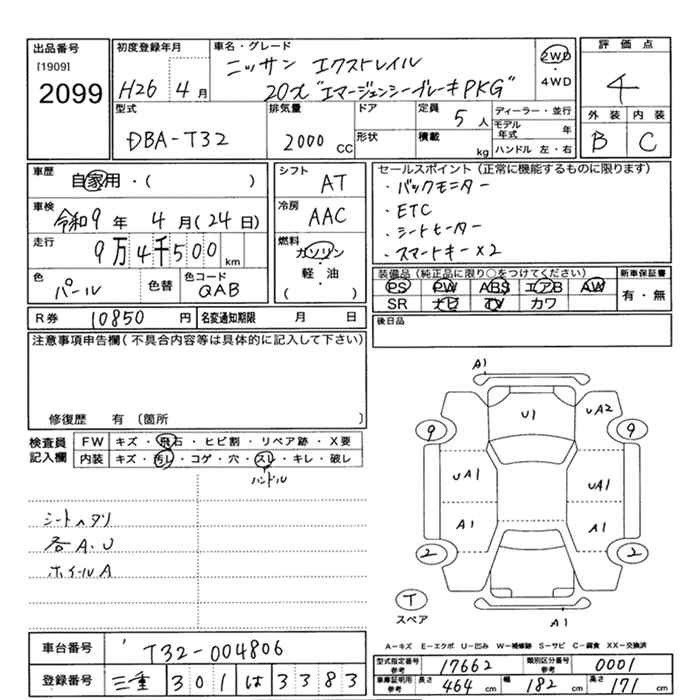 出品番号
[1909]
2099
初度登録年月
H26 4月
車名・グレード
ニッサン エクストレイル
20X "エマージェンシーブレーキPKG"
2WD
4WD
評価点
4
外装 内装
B C
型式
DBA-T32
排気量
2000 CC
ドア
形状
定員
5人
積載
kg
ディーラー・並行
モデル年式 年
ハンドル 左・右
車歴
自家用・( )
車検
令和9年 4月(24日)
走行
9万4千500km
色
パール
色替
色コード
QAB
シフト
AT
冷房
AAC
燃料
ガソリン
・軽・油
( )
セールスポイント(正常に機能するものに限ります)
・バックモニター
・ETC
・シートヒーター
・スマートキー×2
装備品(純正品に限り○をつけてください)
PS PW ABS エアB AW
SR ナビ TV カワ
新車保証書
有・無
R券 10850円
名変通知期限 月 日
後日品
注意事項申告欄(不具合内容等は具体的に記入して下さい)
修復歴 有〔箇所 〕
検査員記入欄
FW キズ・飛石・ヒビ割・リペア跡・X要
内装 キズ・汚レ・コゲ・穴・スレ・キレ・破レ
ハンドル
シートヘタリ
各A.U
ホイールA
A1
U1
UA2
9
9
UA1
UA1
A1
A1
2
2
T
スペア
A1
A-キズ E-エクボ U-凹み W-補修跡 S-サビ C-腐食 XX-交換済
車台番号
T32-004806
登録番号
三重 301 は 3383
型式指定番号 参考
17662
類別区分番号 参考
0001
車庫証明用 参考
長さ 464cm
幅 182cm
高さ 171cm